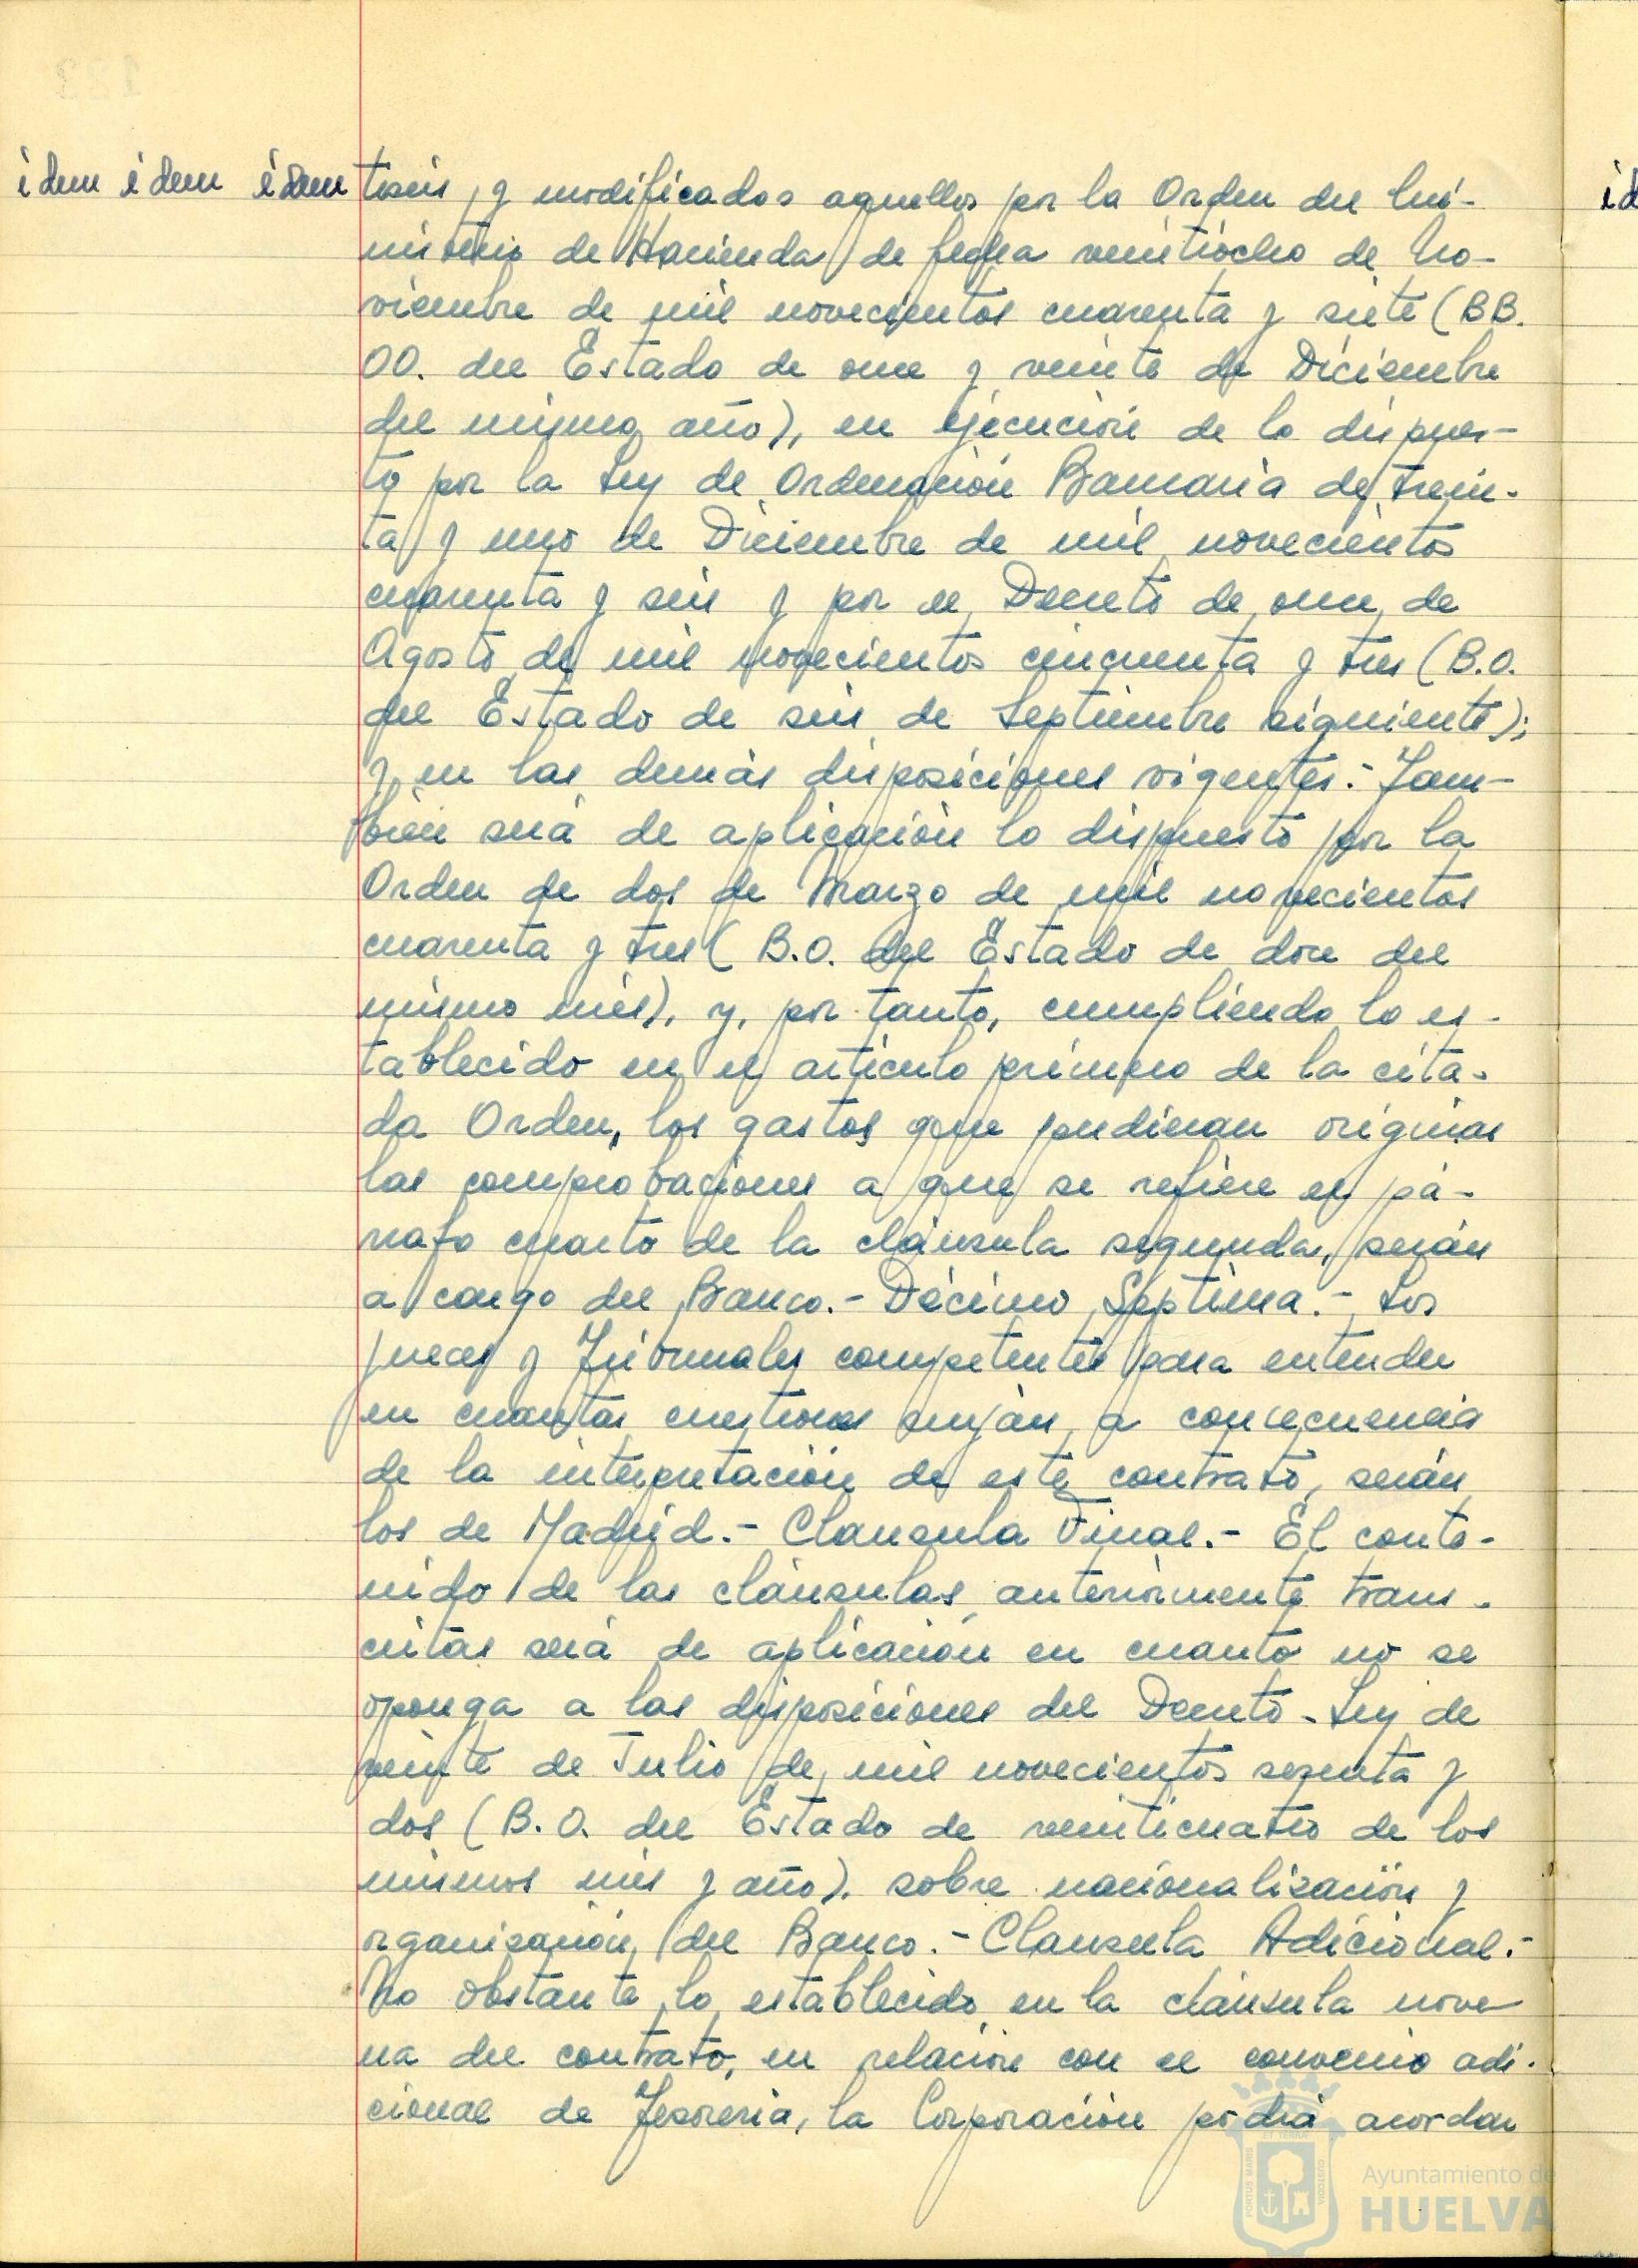 idem idem idem
tiseis, y modificados aquellos por la Orden del Mi-
nisterio de Hacienda de fecha veintiocho de No-
viembre de mil novecientos cuarenta y siete (BB.
OO. del Estado de once y veinte de Diciembre
del mismo año), en ejecución de lo dispues-
to por la Ley de Ordenación Bancaria de trein-
ta y uno de Diciembre de mil novecientos
cuarenta y seis y por el Decreto de once de
Agosto de mil novecientos cincuenta y tres (B.O.
del Estado de seis de Septiembre siguiente);
y en las demás disposiciones vigentes.- Tam-
bien será de aplicación lo dispuesto por la
Orden de dos de Marzo de mil novecientos
cuarenta y tres (B.O. del Estado de doce del
mismo mes), y, por tanto, cumpliendo lo es-
tablecido en el artículo primero de la cita-
da Orden, los gastos que pudieran originar
las comprobaciones a que se refiere el pá-
rrafo cuarto de la cláusula segunda, serán
a cargo del Banco.- Décimo Septima.- Los
jueces y Tribunales competentes para entender
en cuantas cuestiones surjan a consecuencia
de la interpretación de este contrato, serán
los de Madrid.- Clausula Final.- El conte-
nido de las cláusulas anteriormente trans-
critas será de aplicación en cuanto no se
oponga a las disposiciones del Decreto-Ley de
veinte de Julio de mil novecientos sesenta y
dos (B.O. del Estado de veinticuatro de los
mismos mes y año). sobre nacionalización y
organización del Banco.- Clausula Adicional.-
No obstante lo establecido en la cláusula nove-
na del contrato, en relación con el convenio adi-
cional de Tesoreria, la Corporación podrá acordar
id
Ayuntamiento de
HUELVA